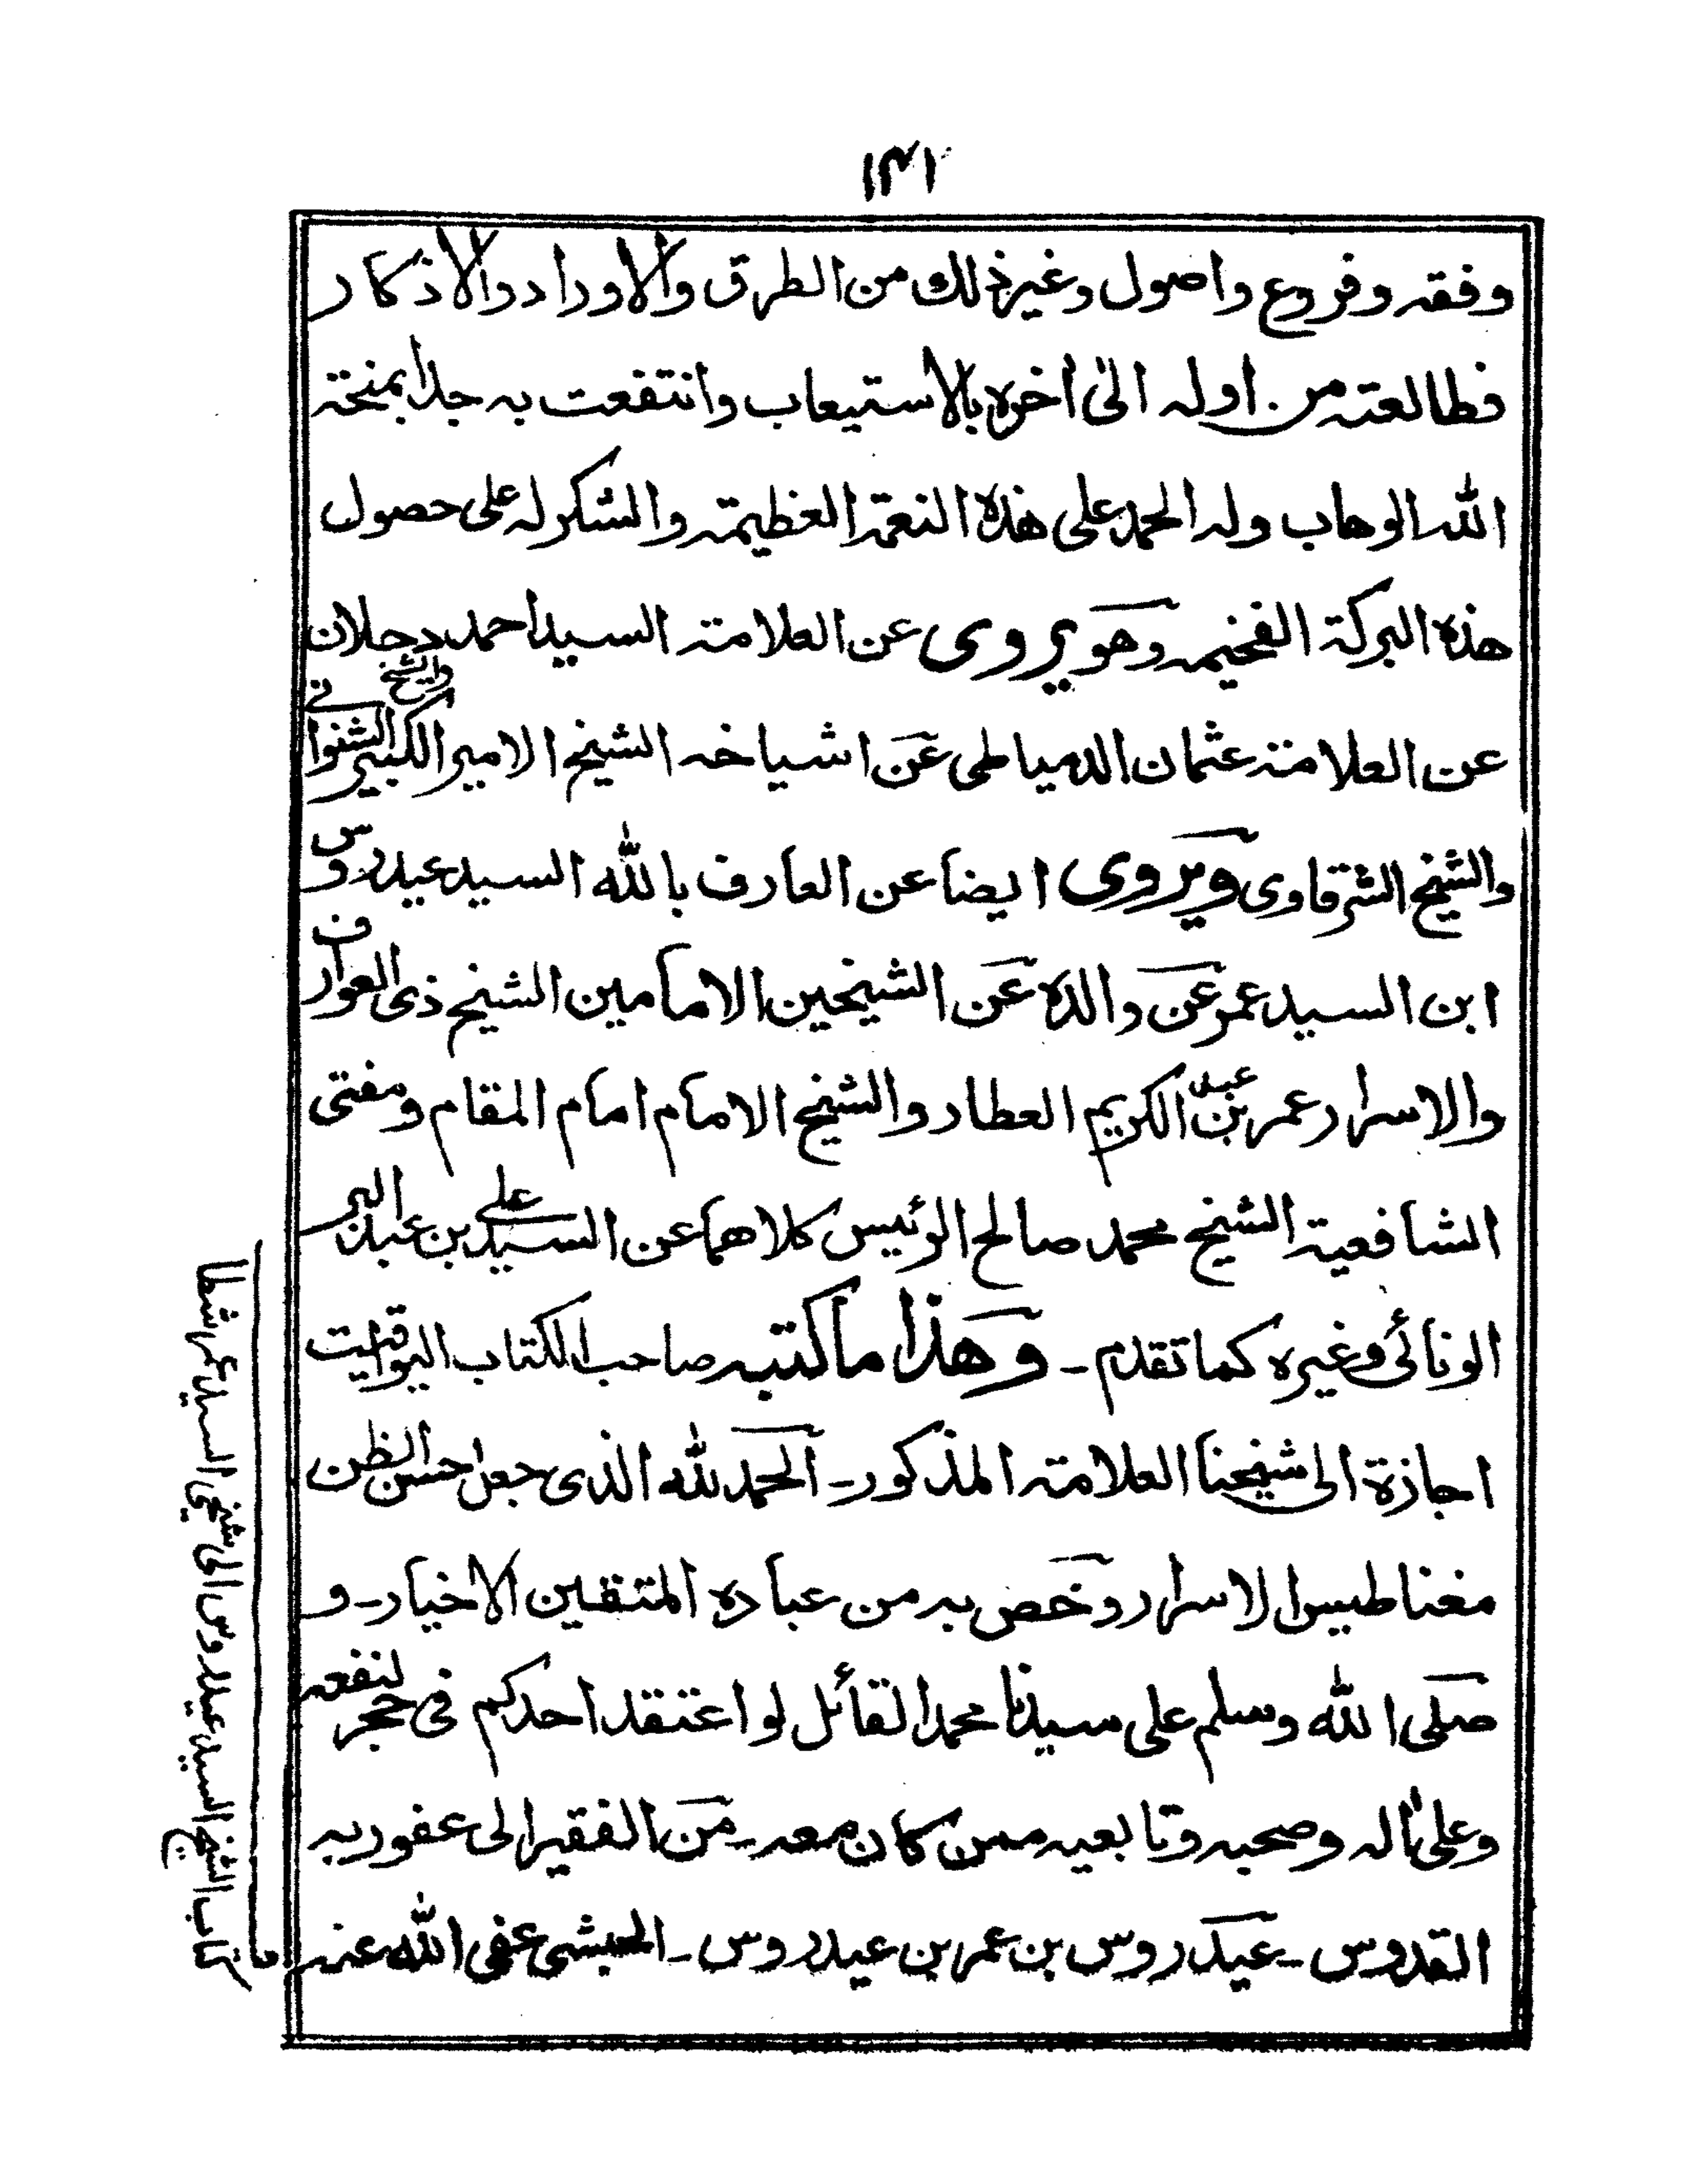 ١٣١
وفقه وفروع واصول وغير ذلك من الطرق والاوراد والاذكار
فطالعته من اوله الى اخره بالاستيعاب وانتفعت به جدا بمنحة
الله الوهاب وله الحمد على هذه النعمة العظيمة والشكر له على حصول
هذه البركة الفخيمه وهو يروى عن العلامة السيد احمد دحلان
عن العلامة عثمان الدمياطى عن اشياخه الشيخ الامير الكبير والشيخ الشنوانى
والشيخ الشرقاوى ويروى ايضا عن العارف بالله السيد عيدروس
ابن السيد عمر عن والده عن الشيخين الامامين الشيخ ذى العوارف
والاسرار عمر بن عبد الكريم العطار والشيخ الامام امام المقام ومفتى
الشافعية الشيخ محمد صالح الرئيس كلاهما عن السيد على بن عبد البر
الونائى وغيره كما تقدم ـ وهذا ما كتبه صاحب الكتاب اليواقيت
اجازة الى شيخنا العلامة المذكور ـ الحمد لله الذى جعل حسن الظن
مغناطيس الاسرار وخص به من عباده المتقين الاخيار ـ و
صلى الله وسلم على سيدنا محمد القائل لو اعتقد احدكم فى حجر لنفعه
وعلى اله وصحبه وتابعيه ممن كان معه ـ من الفقير الى عفو ربه
القدوس ـ عيدروس بن عمر بن عيدروس ـ الحبشى عفى الله عنه
كتاب الشيخ السيد عيدروس الى شيخى السيد عمر شطا